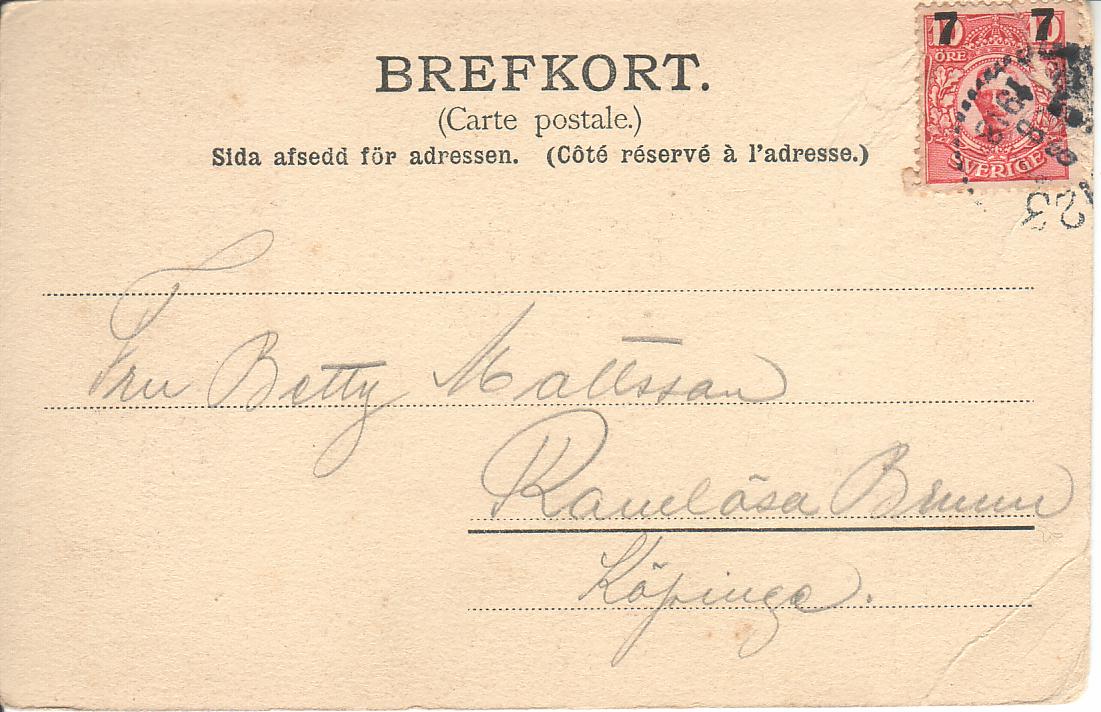 BREFKORT.
(Carte postale.)
Sida afsedd för adressen. (Côté réservé à l'adresse.)
7 7
10 10
ÖRE
SVERIGE
1918
23
Fru Betty Mattsson
Ramlösa Brunn
Köpinge.